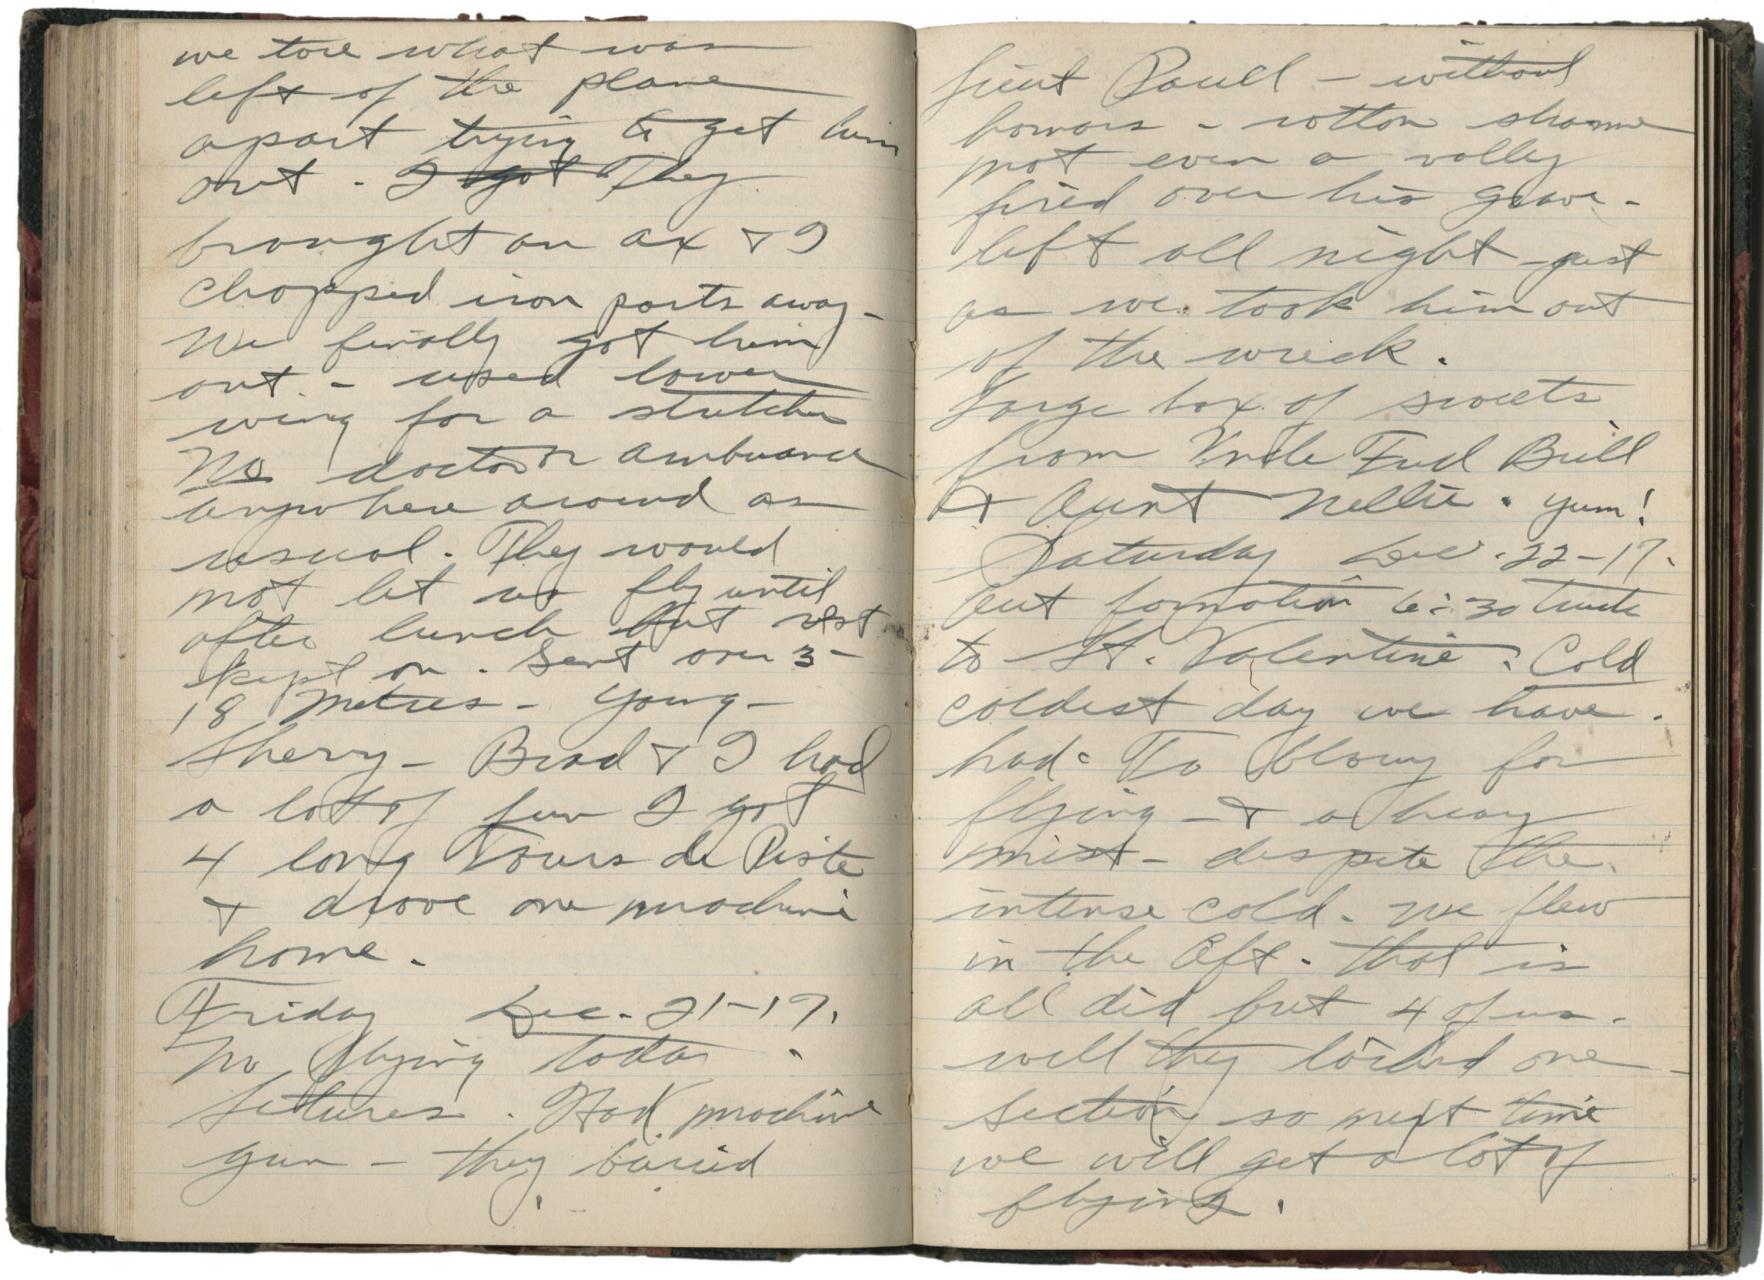 we tore what was
left of the plane
apart trying to get him
out - I got They
brought an ax & I
chopped iron parts away -
We finally got him
out - used lower
wing for a stretcher
No doctor or ambuance
anywhere around as
usual. They would
not let us fly until
after lunch but rest
kept on. Sent over 3 -
18 metres - Young -
Sherry - Brad & I had
a lot of fun I got
4 long Tours de Piste
& drove one machine
home.
Friday Dec. 21-17.
No flying today.
Lectures. Had machine
gun - they buried
Lieut Paull - without
honors - rotton shame
not even a volley
fired over his grave -
left all night just
as we took him out
of the wreck.
Large box of sweets
from Uncle Fred Brill
& Aunt Nellie. yum!
Saturday Dec. 22-17.
Out formation 6:30 Truck
to St. Valentine: Cold
coldest day we have
had. To blowy for
flying - & a heavy
mist - despite the
intense cold. We flew
in the Aft. that is
all did but 4 of us.
well they loved one
section so next time
we will get a lot of
flying.